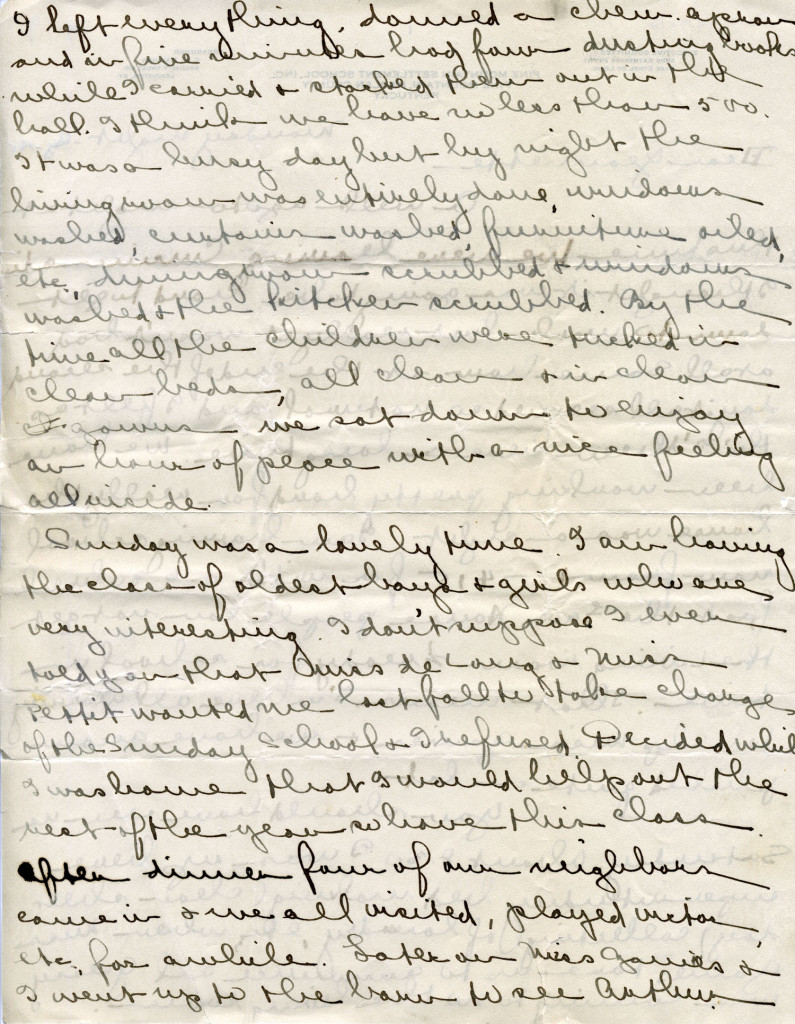 I left everything, donned a clean apron
and in five minutes had four dusting books
while I carried & stacked them out in the
hall. I think we have no less than 500.
It was a busy day but by night the
living room was entirely done, windows
washed, curtains washed, furniture oiled,
etc., dining room scrubbed & windows
washed & the kitchen scrubbed. By the
time all the children were tucked in
clean beds, all clean & in clean
gowns we sat down to enjoy
an hour of peace with a nice feeling
all inside.
Sunday was a lovely time. I am having
the class of oldest boys & girls who are
very interesting. I don't suppose I ever
told you that Miss de Long & Miss
Pettit wanted me last fall to take charge
of the Sunday School & I refused. Decided while
I was home that I would help out the
rest of the year so have this class.
After dinner four of our neighbors
came in & we all visited, played victor,
etc. for awhile. Later on Miss Gaines &
I went up to the barn to see Arthur